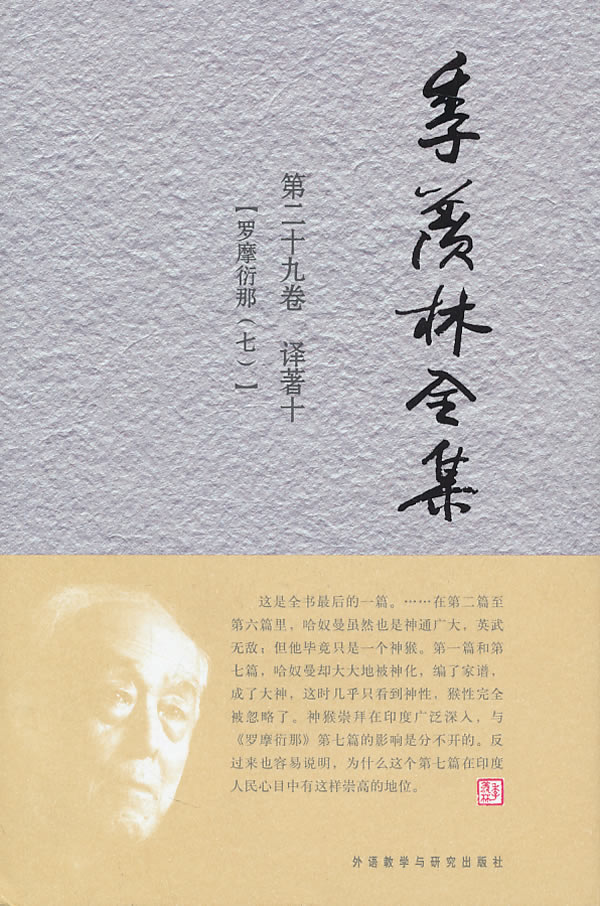 季羡林全集
第二十九卷 译著十
【罗摩衍那(七)】
这是全书最后的一篇。……在第二篇至
第六篇里,哈奴曼虽然也是神通广大,英武
无敌;但他毕竟只是一个神猴。第一篇和第
七篇,哈奴曼却大大地被神化,编了家谱,
成了大神,这时几乎只看到神性,猴性完全
被忽略了。神猴崇拜在印度广泛深入,与
《罗摩衍那》第七篇的影响是分不开的。反
过来也容易说明,为什么这个第七篇在印度
人民心目中有这样崇高的地位。
季羡林
外语教学与研究出版社